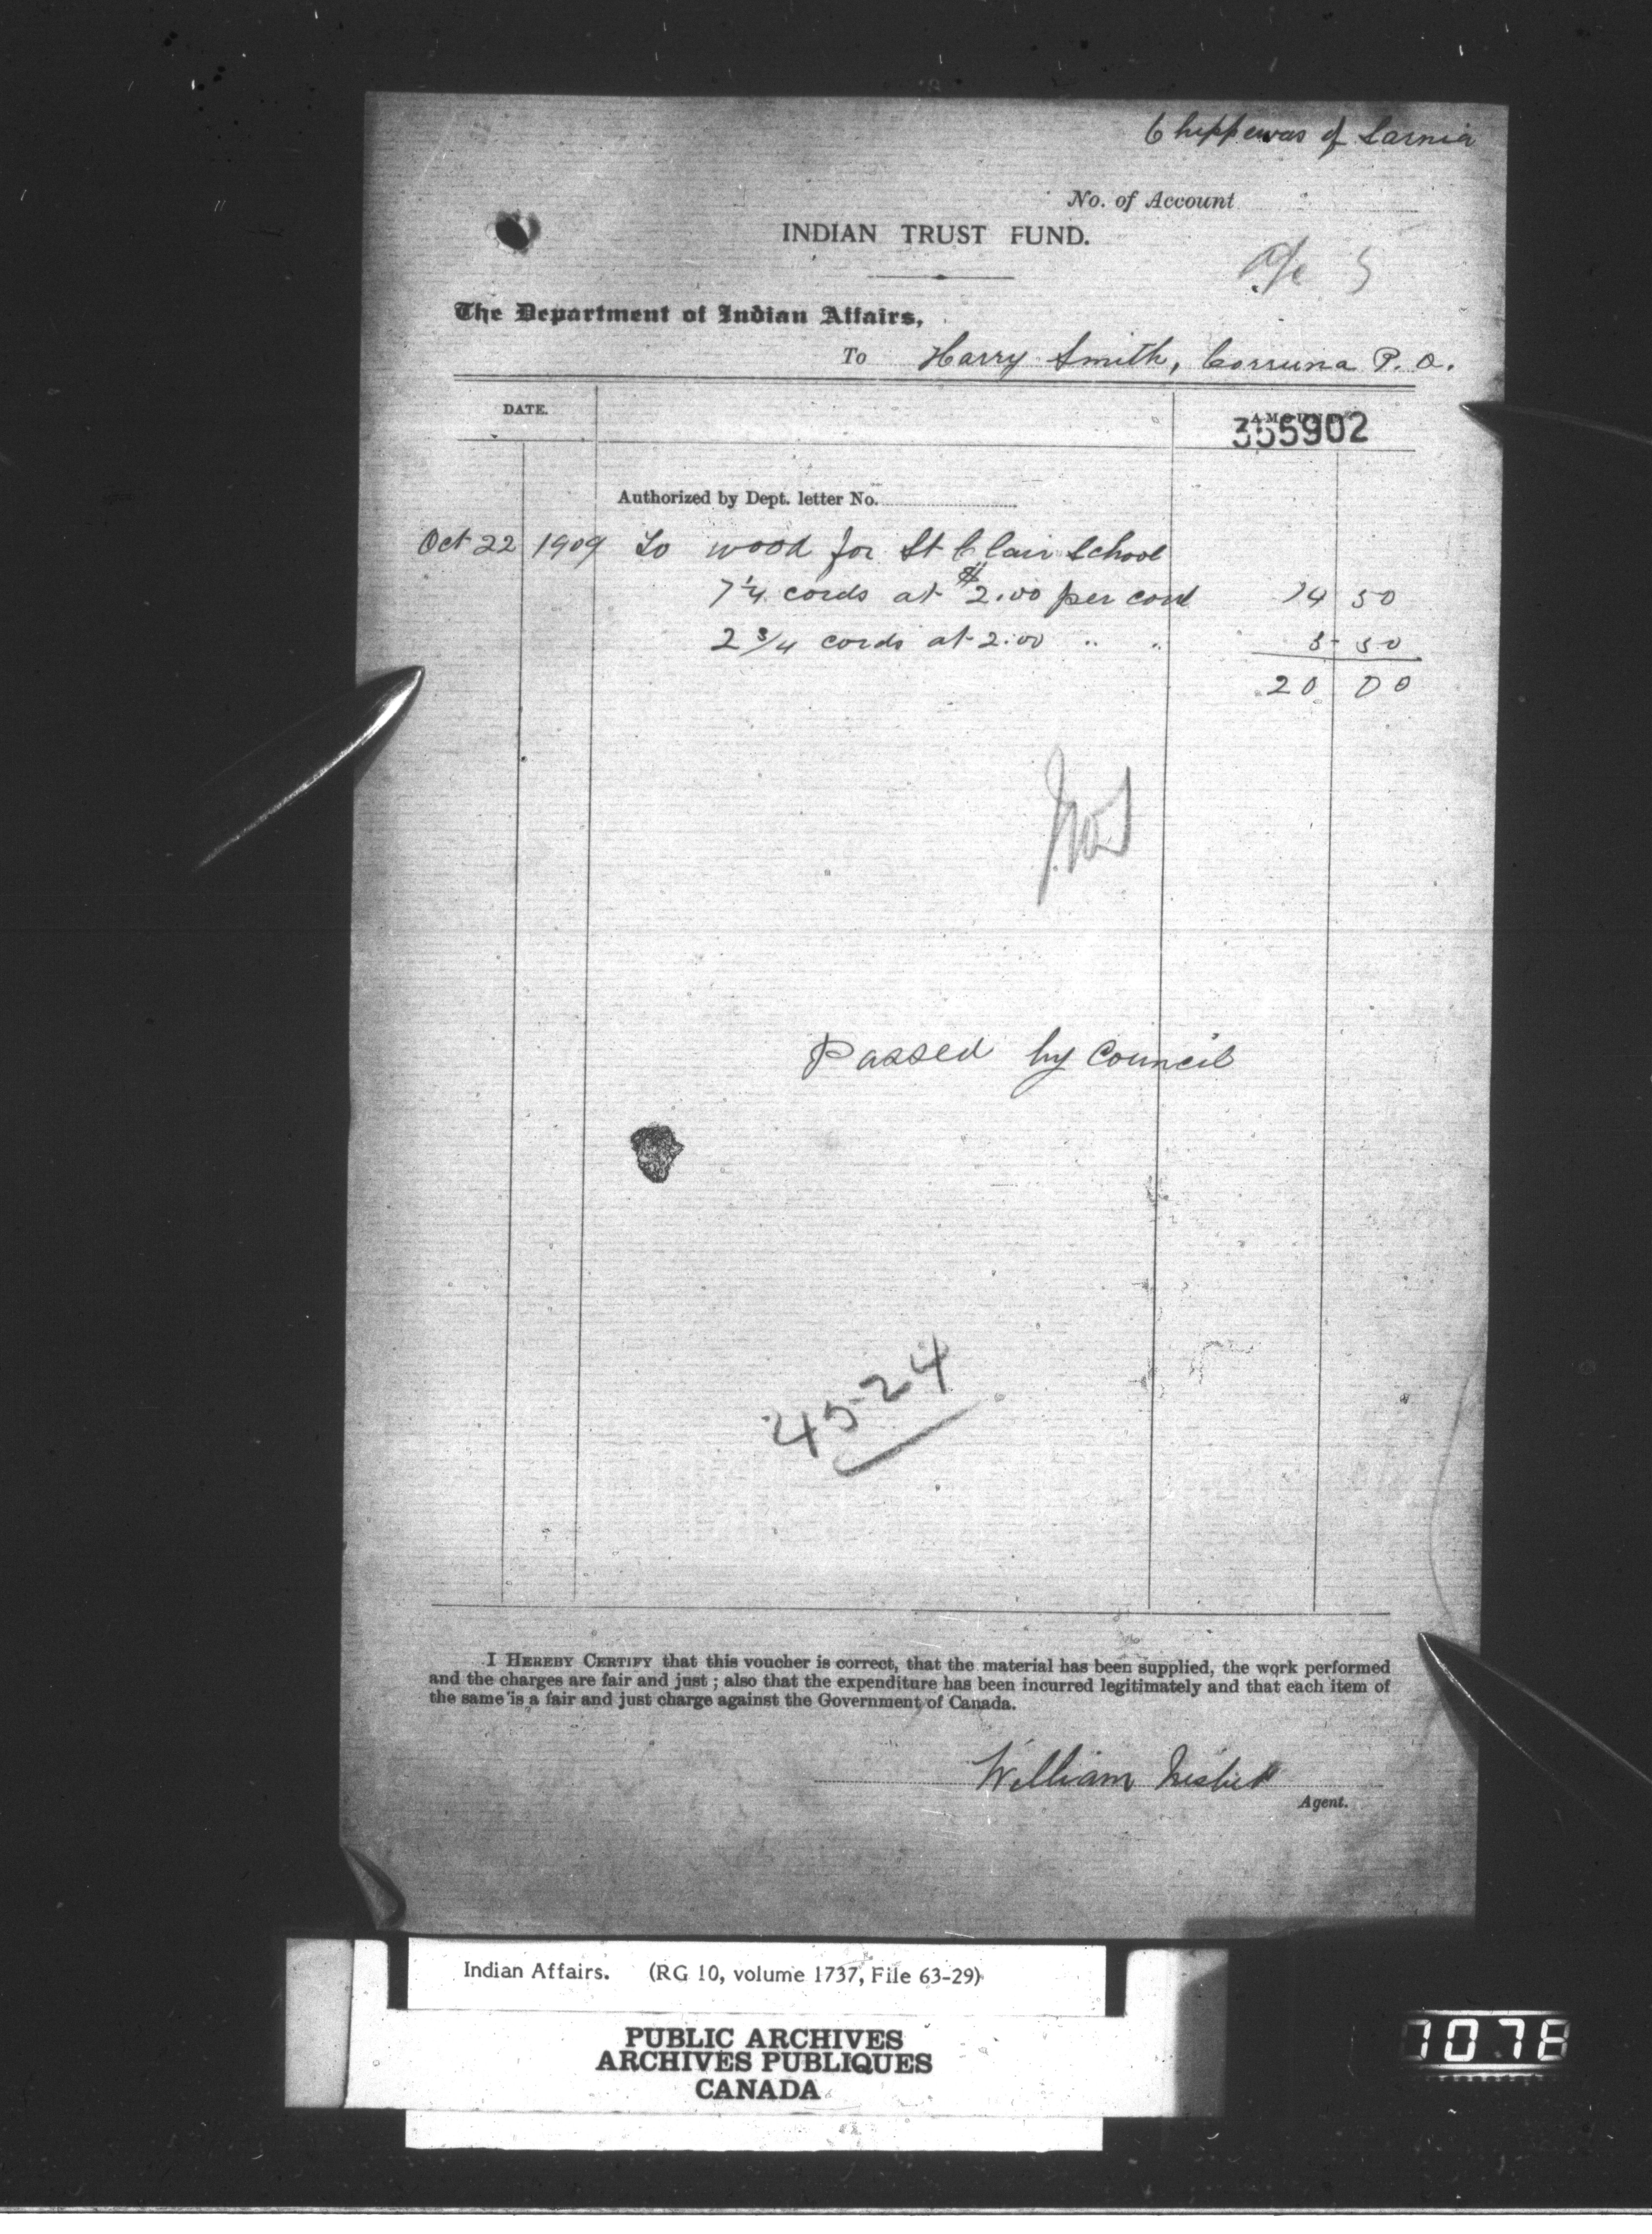 Chippewas of Sarnia
No. of Account
INDIAN TRUST FUND.
The Department of Indian Affairs,
To Harry Smith, Corruna P. O.
DATE. AMOUNT
355902
Authorized by Dept. letter No.
Oct 22 1909 To wood for St Clair School
7 1/4 cords at $2.00 per cord 14 50
2 3/4 cords at 2.00 " " 5 50
20 00
Passed by Council
45-24
I HEREBY CERTIFY that this voucher is correct, that the material has been supplied, the work performed
and the charges are fair and just ; also that the expenditure has been incurred legitimately and that each item of
the same is a fair and just charge against the Government of Canada.
William Nisbet
Agent.
Indian Affairs. (RG 10, volume 1737, File 63-29)
PUBLIC ARCHIVES
ARCHIVES PUBLIQUES
CANADA
7078